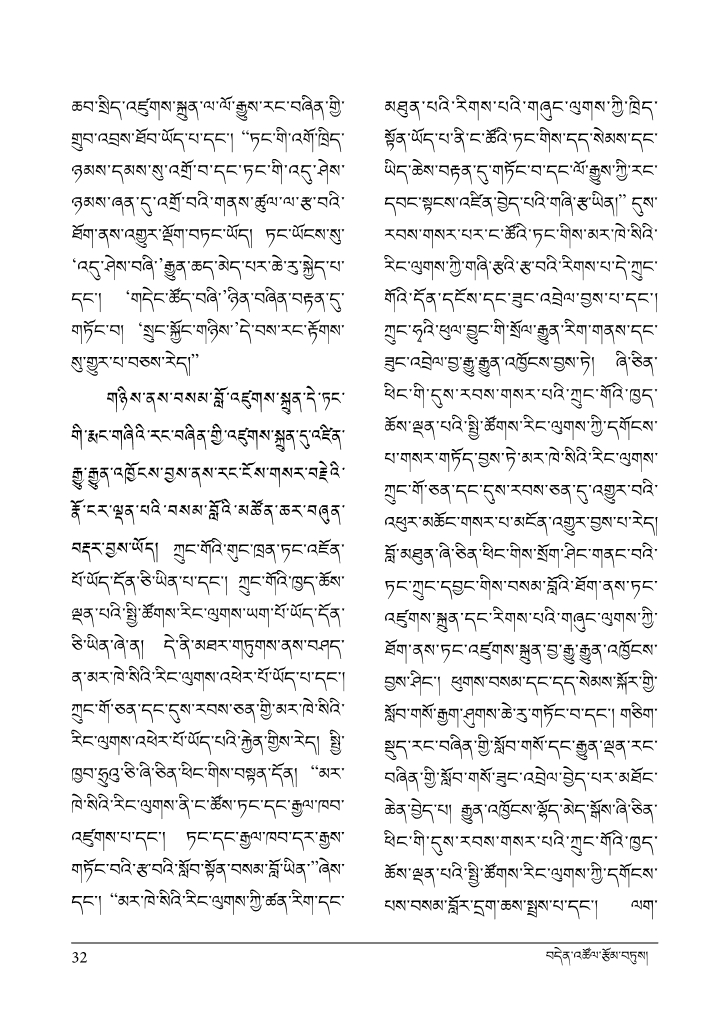 ཆབ་སྲིད་འཛུགས་སྐྲུན་ལ་ལོ་རྒྱུས་རང་བཞིན་གྱི་
གྲུབ་འབྲས་ཐོབ་ཡོད་པ་དང་། “ཏང་གི་འགོ་ཁྲིད་
ཉམས་དམས་སུ་འགྲོ་བ་དང་ཏང་གི་འདུ་ཤེས་
ཉམས་ཞན་དུ་འགྲོ་བའི་གནས་ཚུལ་ལ་རྩ་བའི་
ཐོག་ནས་འགྱུར་ལྡོག་བཏང་ཡོད། ཏང་ཡོངས་སུ་
‘འདུ་ཤེས་བཞི་’རྒྱུན་ཆད་མེད་པར་ཆེ་རུ་སྐྱེད་པ་
དང་། ‘གདེང་ཚོད་བཞི་’ཉིན་བཞིན་བརྟན་དུ་
གཏོང་བ། ‘སྲུང་སྐྱོང་གཉིས་’དེ་བས་རང་རྟོགས་
སུ་གྱུར་པ་བཅས་རེད།”
གཉིས་ནས་བསམ་བློ་འཛུགས་སྐྲུན་དེ་ཏང་
གི་རྨང་གཞིའི་རང་བཞིན་གྱི་འཛུགས་སྐྲུན་དུ་འཛིན་
རྒྱུ་རྒྱུན་འཁྱོངས་བྱས་ནས་རང་ངོས་གསར་བརྗེའི་
རྣོ་ངར་ལྡན་པའི་བསམ་བློའི་མཚོན་ཆར་བཞུན་
བརྡར་བྱས་ཡོད། ཀྲུང་གོའི་གུང་ཁྲན་ཏང་འཇོན་
པོ་ཡོད་དོན་ཅི་ཡིན་པ་དང་། ཀྲུང་གོའི་ཁྱད་ཆོས་
ལྡན་པའི་སྤྱི་ཚོགས་རིང་ལུགས་ཡག་པོ་ཡོད་དོན་
ཅི་ཡིན་ཞེ་ན། དེ་ནི་མཐར་གཏུགས་ནས་བཤད་
ན་མར་ཁེ་སིའི་རིང་ལུགས་འཕེར་པོ་ཡོད་པ་དང་།
ཀྲུང་གོ་ཅན་དང་དུས་རབས་ཅན་གྱི་མར་ཁེ་སིའི་
རིང་ལུགས་འཕེར་པོ་ཡོད་པའི་རྐྱེན་གྱིས་རེད། སྤྱི་
ཁྱབ་ཧྲུའུ་ཅི་ཞི་ཅིན་ཕིང་གིས་བསྟན་དོན། “མར་
ཁེ་སིའི་རིང་ལུགས་ནི་ང་ཚོས་ཏང་དང་རྒྱལ་ཁབ་
འཛུགས་པ་དང་། ཏང་དང་རྒྱལ་ཁབ་དར་རྒྱས་
གཏོང་བའི་རྩ་བའི་སློབ་སྟོན་བསམ་བློ་ཡིན་”ཞེས་
དང་། “མར་ཁེ་སིའི་རིང་ལུགས་ཀྱི་ཚན་རིག་དང་
མཐུན་པའི་རིགས་པའི་གཞུང་ལུགས་ཀྱི་ཁྲིད་
སྟོན་ཡོད་པ་ནི་ང་ཚོའི་ཏང་གིས་དད་སེམས་དང་
ཡིད་ཆེས་བརྟན་དུ་གཏོང་བ་དང་ལོ་རྒྱུས་ཀྱི་རང་
དབང་སྟངས་འཛིན་བྱེད་པའི་གཞི་རྩ་ཡིན།” དུས་
རབས་གསར་པར་ང་ཚོའི་ཏང་གིས་མར་ཁེ་སིའི་
རིང་ལུགས་ཀྱི་གཞི་རྩའི་རྩ་བའི་རིགས་པ་དེ་ཀྲུང་
གོའི་དོན་དངོས་དང་ཟུང་འབྲེལ་བྱས་པ་དང་།
ཀྲུང་ཧྭའི་ཕུལ་བྱུང་གི་སྲོལ་རྒྱུན་རིག་གནས་དང་
ཟུང་འབྲེལ་བྱ་རྒྱུ་རྒྱུན་འཁྱོངས་བྱས་ཏེ། ཞི་ཅིན་
ཕིང་གི་དུས་རབས་གསར་པའི་ཀྲུང་གོའི་ཁྱད་
ཆོས་ལྡན་པའི་སྤྱི་ཚོགས་རིང་ལུགས་ཀྱི་དགོངས་
པ་གསར་གཏོད་བྱས་ཏེ་མར་ཁེ་སིའི་རིང་ལུགས་
ཀྲུང་གོ་ཅན་དང་དུས་རབས་ཅན་དུ་འགྱུར་བའི་
འཕུར་མཆོང་གསར་པ་མངོན་འགྱུར་བྱས་པ་རེད།
བློ་མཐུན་ཞི་ཅིན་ཕིང་གིས་སྲོག་ཤིང་གནང་བའི་
ཏང་ཀྲུང་དབྱང་གིས་བསམ་བློའི་ཐོག་ནས་ཏང་
འཛུགས་སྐྲུན་དང་རིགས་པའི་གཞུང་ལུགས་ཀྱི་
ཐོག་ནས་ཏང་འཛུགས་སྐྲུན་བྱ་རྒྱུ་རྒྱུན་འཁྱོངས་
བྱས་ཤིང་། ཕུགས་བསམ་དང་དད་སེམས་སྐོར་གྱི་
སློབ་གསོ་རྒྱག་ཤུགས་ཆེ་རུ་གཏོང་བ་དང་། གཅིག་
སྡུད་རང་བཞིན་གྱི་སློབ་གསོ་དང་རྒྱུན་ལྡན་རང་
བཞིན་གྱི་སློབ་གསོ་ཟུང་འབྲེལ་བྱེད་པར་མཐོང་
ཆེན་བྱེད་པ། རྒྱུན་འཁྱོངས་ལྷོད་མེད་སྒོས་ཞི་ཅིན་
ཕིང་གི་དུས་རབས་གསར་པའི་ཀྲུང་གོའི་ཁྱད་
ཆོས་ལྡན་པའི་སྤྱི་ཚོགས་རིང་ལུགས་ཀྱི་དགོངས་
པས་བསམ་བློར་དྲག་ཆས་སྤྲས་པ་དང་། ལག་
32
བདེན་འཚོལ་རྩོམ་བཏུས།